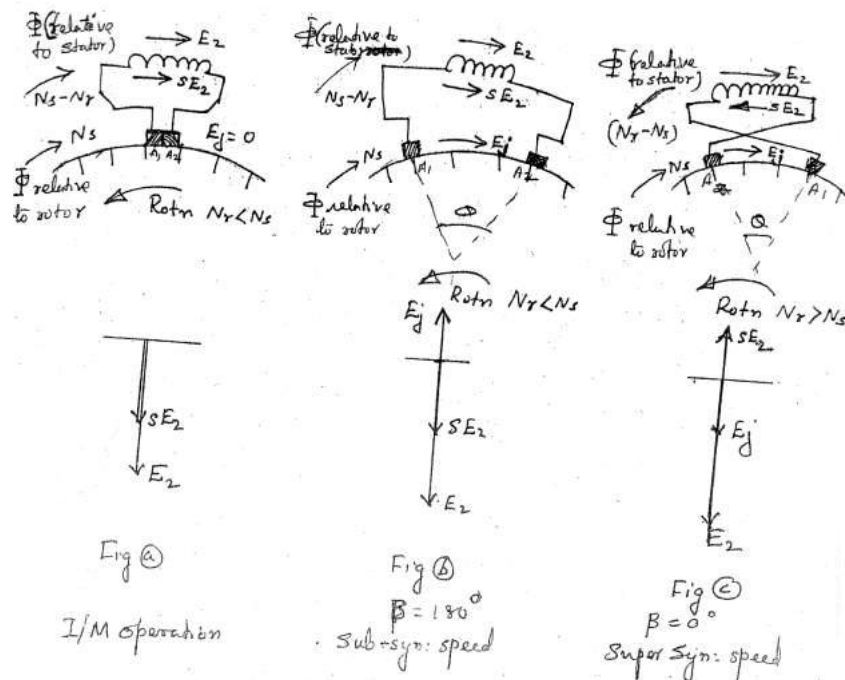 Φ(relative
to stator)
E₂
SE₂
Ns-Nr
Ns
Ej=0
A₁ A₂
Φ relative
to rotor
Rotn Nr<Ns
SE₂
E₂
Fig ⓐ
I/M operation
Φ(relative to
stator)
E₂
SE₂
Ns-Nr
Ns
Ej
A₁
A₂
Φ relative
to rotor
Θ
Rotn Nr<Ns
Ej
SE₂
E₂
Fig ⓑ
β = 180°
Sub-syn: speed
Φ(relative
to stator)
E₂
SE₂
(Nr-Ns)
Ns
Ej
A₂
A₁
Φ relative
to rotor
Θ
Rotn Nr>Ns
SE₂
Ej
E₂
Fig ⓒ
β=0°
Super Syn: speed